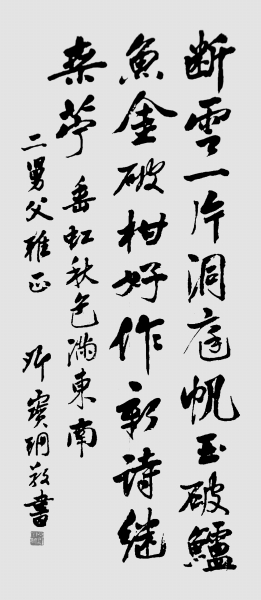 断雲一片洞庭帆玉破鱸
魚金破柑好作新詩继
桒苧垂虹秋色滿東南
二男父雅正 邓寶珊敬書